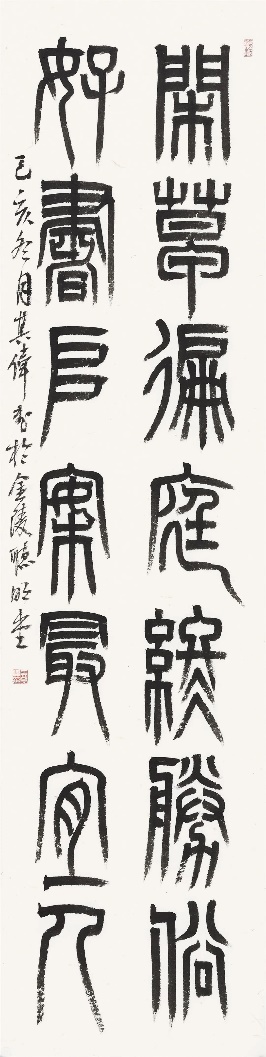 閑草徧庭終勝俗
好書𠂤案最宜人
己亥冬月其偉書於金陵聽堂